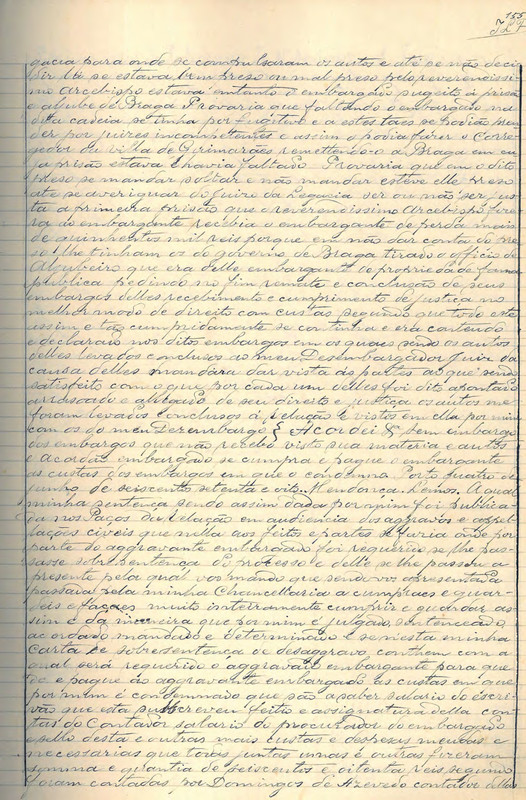 155
gacia para onde se compulsaram os autos e até se não deci
dir lá se estava bem preso ou mal preso pelo reverendissi
mo arcebispo estava entanto o embargado sugeito á prisão
e aljube de Braga Provaria que faltando o embargado na
dita cadeia se tinha por fugitivo e a estes taes se podião pren
der por juizes incompetentes e assim o podia fazer o Corre
gedor da villa de Guimarães remettendo-o a Braga em cu
ja prisão estava e havia faltado Provaria que em o dito
preso se mandar soltar e não mandar esteve elle preso
até se averiguar do juizo da Legacia ser ou não ser jus
ta a primeira prisão que o reverendissimo Arcebispo fize
ra do embargante recebia o embargante de perda mais
de quinhentos mil reis porque em não dar conta do pre
so lhe tinham os do governo de Braga tirado o officio de
Aljubeiro que era delle embargante de propriedade fama
publica pedindo no fim remate e conclusão de seus
embargos delles recebimento e cumprimento de justiça no
melhor modo de direito com custas segundo que todo esto
assim e tão cumpridamente se continha e era contendo
e declarado nos ditos embargos com os quaes sendo os autos
delles levados conclusos ao meu Desembargador Juiz da
causa delles mandára dar vista ás partes ao que sendo
satisfeito com o que por cada um delles foi dito apontado
arrasoado e allegado de seu direito e justiça os autos me
foram levados conclusos á Relação e vistos em ella por mim
com os do meu Dezembargo { Acordei &. Sem embargo
dos embargos que não recebo vista sua materia e autos
e Acordão embargado se cumpra e pague o embargante
as custas dos embargos em que o condemna. Porto quatro de
junho de seiscentos setenta e oito. Mendonca. Lemos. A qual
minha sentença sendo assim dada por mim foi publica
da nos Paços da Relação em audiencia dos aggravos e appel
lações civeis que nella aos feitos e partes se fazia onde por
parte do aggravante embargado foi requerido se lhe pas
sasse sobresentença do processo e delle se lhe passou a
presente pela qual vos mando que sendo-vos apresentada
passada pela minha Chancellaria a cumpraes e guar
deis e façaes muito inteiramente cumprir e guardar as
sim e da maneira que por mim é julgado, sentenceado,
acordado mandado e determinado e se nesta em minha
carta de sobresentença de desaggravo conthem com a
qual será requerido o aggravado embargante para que
dê e pague ao aggravante embargado as custas em que
por mim é condemnado que são a saber salario do escri
vão que esta subscreveu feitio e assignatura della con
tas do Contador salario do procurador do embargado
e sello desta e outras mais custas e despesas meudas e
necessarias que todas juntas umas e outras fizeram
somma e quantia de seiscentos e oitenta reis segundo
foram contadas por Domingos de Azevedo contador dellas